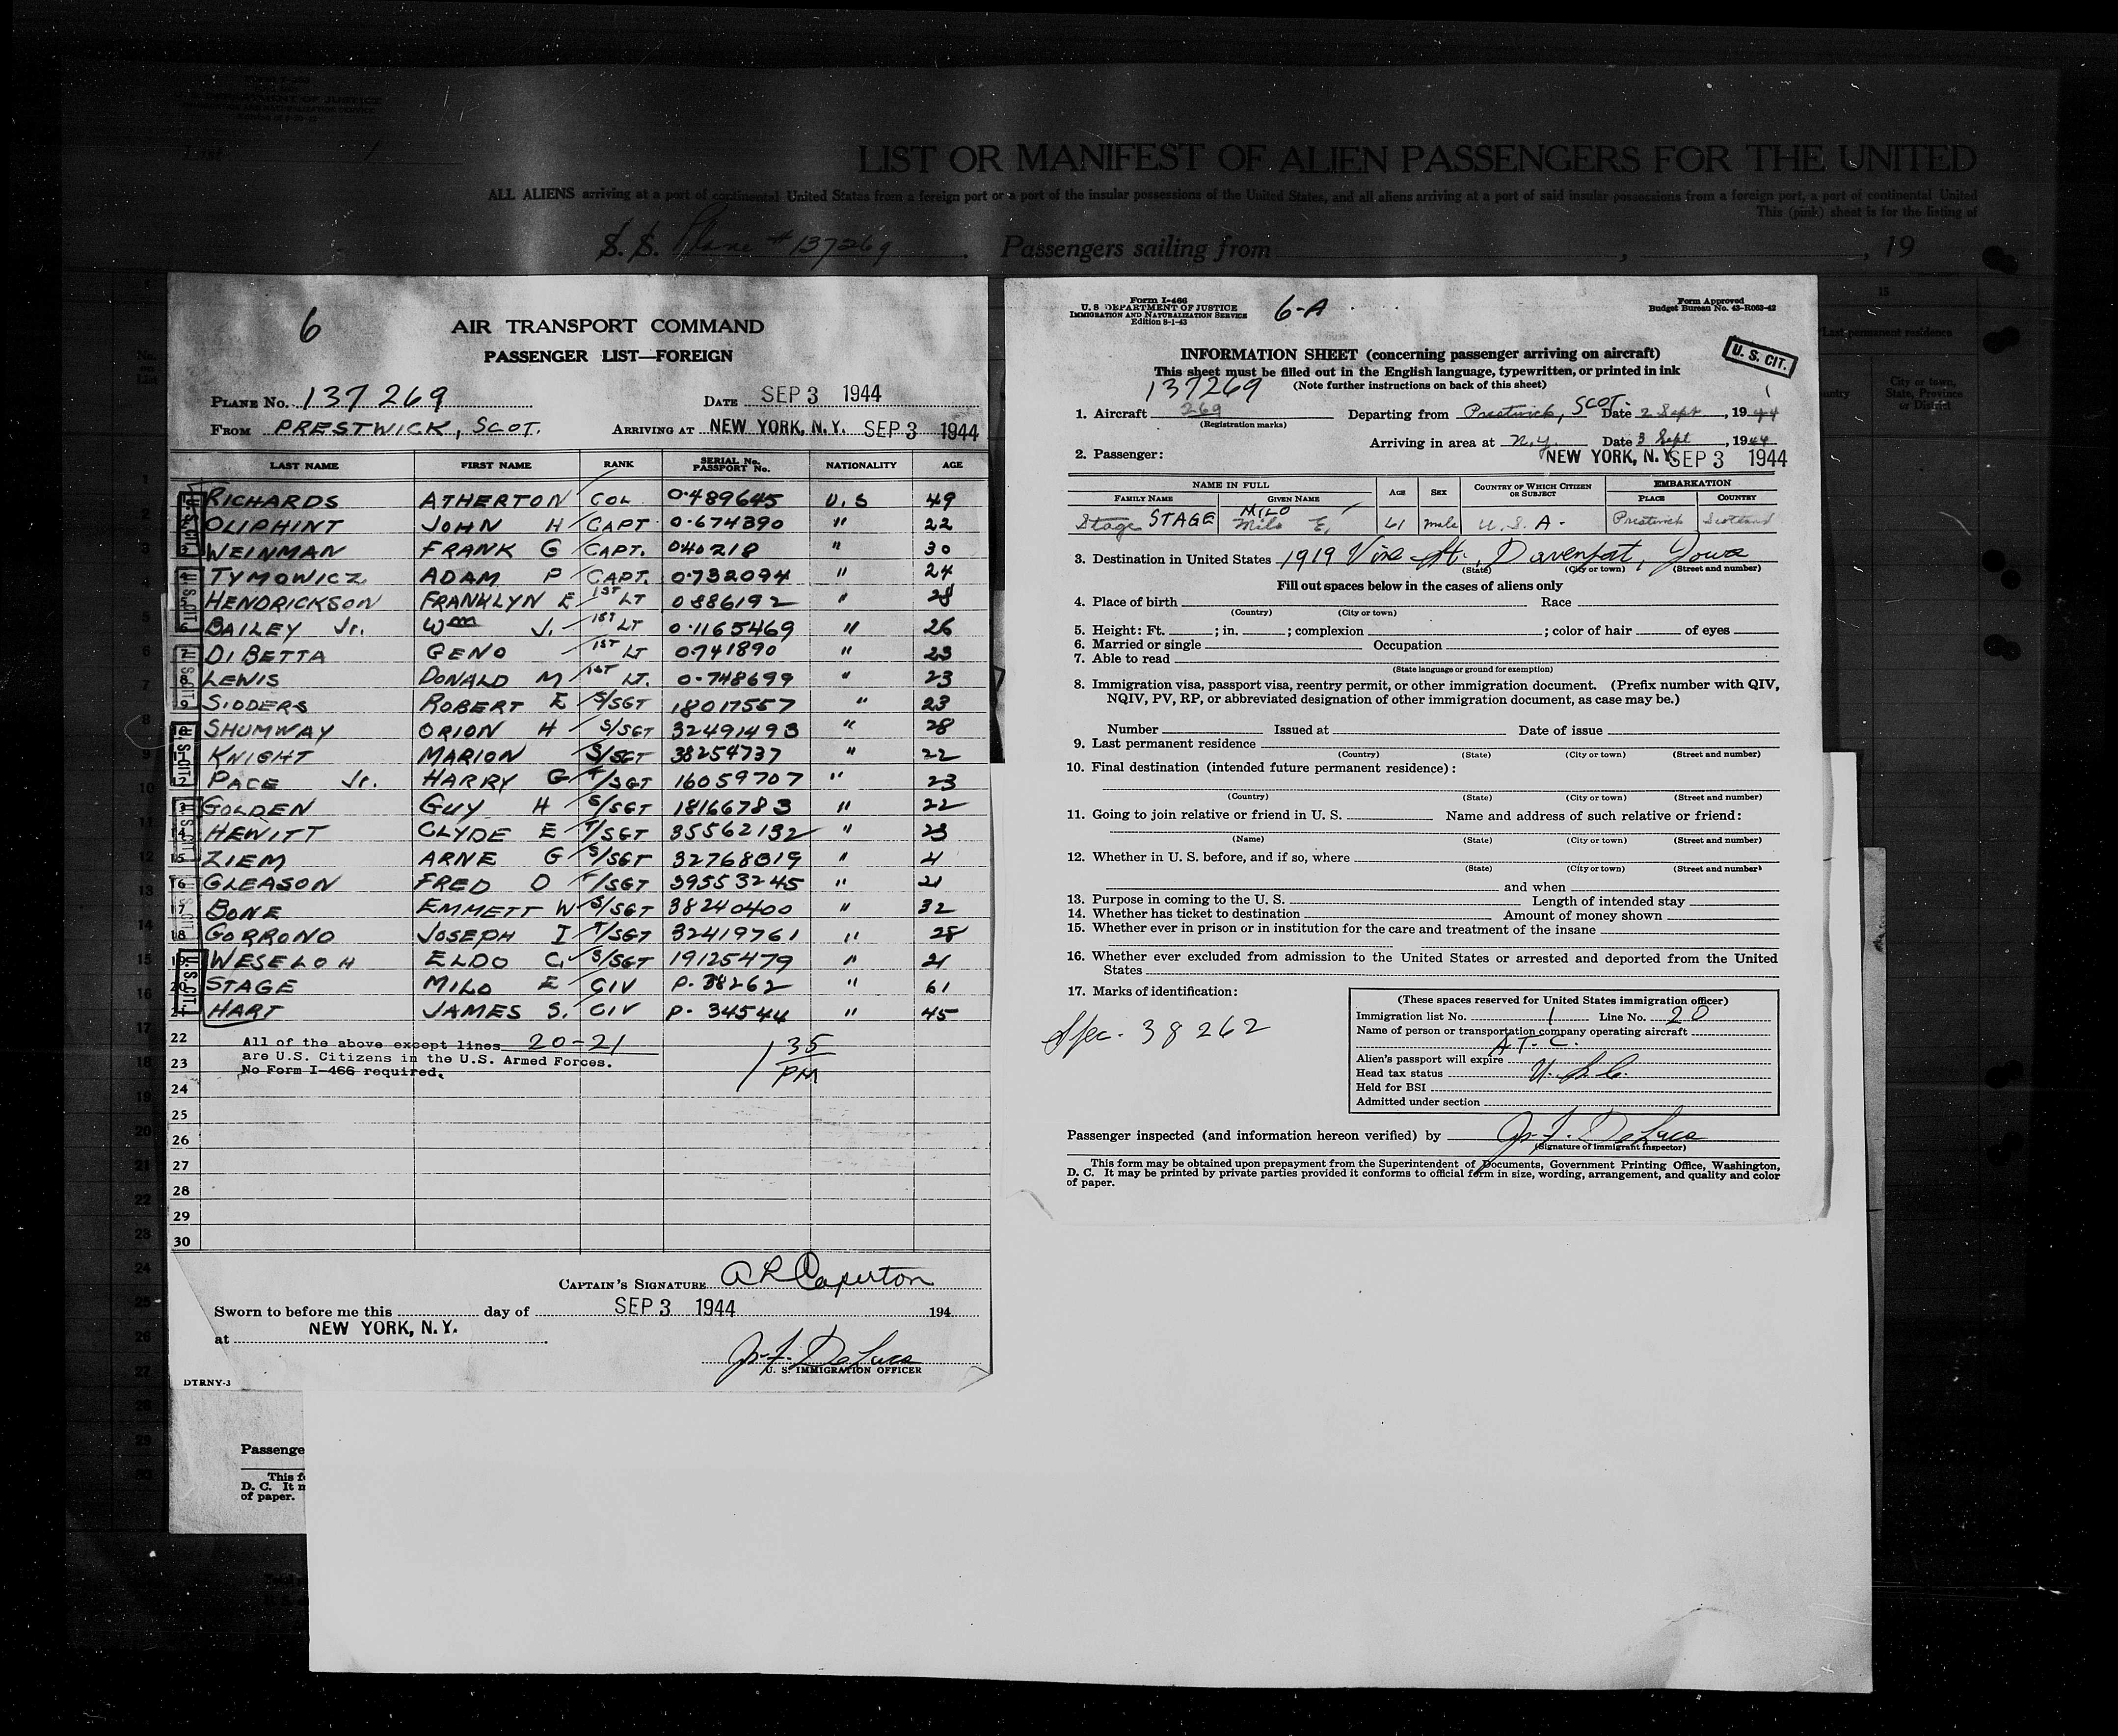 LIST OR MANIFEST OF ALIEN PASSENGERS FOR THE UNITED
ALL ALIENS arriving at a port of continental United States from a foreign port or a port of the insular possessions of the United States, and all aliens arriving at a port of said insular possessions from a foreign port, a port of continental United
This (pink) sheet is for the listing of
S. S. Plane # 137269 Passengers sailing from , , 19
6
AIR TRANSPORT COMMAND
PASSENGER LIST—FOREIGN
PLANE No. 137269 DATE SEP 3 1944
FROM PRESTWICK, SCOT. ARRIVING AT NEW YORK, N.Y. SEP 3 1944
LAST NAME FIRST NAME RANK SERIAL No. PASSPORT No. NATIONALITY AGE
1 RICHARDS ATHERTON COL 0-489645 U.S 49
2 OLIPHINT JOHN H CAPT 0-674390 " 22
3 WEINMAN FRANK G CAPT. 040218 " 30
4 TYMOWICZ ADAM P CAPT. 0-732094 " 24
5 HENDRICKSON FRANKLYN E 1ST LT 0886192 " 28
6 BAILEY Jr. Wm J. 1ST LT 0-1165469 " 26
7 DIBETTA GENO 1ST LT 0741890 " 23
8 LEWIS DONALD M 1ST LT. 0-748699 " 23
9 SIDDERS ROBERT E S/SGT 18017557 " 23
10 SHUMWAY ORION H S/SGT 32491493 " 28
11 KNIGHT MARION S/SGT 38254737 " 22
12 PACE Jr. HARRY G T/SGT 16059707 " 23
13 GOLDEN GUY H S/SGT 18166783 " 22
14 HEWITT CLYDE E T/SGT 35562132 " 23
15 ZIEM ARNE G S/SGT 32768019 " 21
16 GLEASON FRED O T/SGT 39553245 " 21
17 BONE EMMETT W S/SGT 38240400 " 32
18 GORRONO JOSEPH I T/SGT 32419761 " 28
19 WESELOH ELDO C. S/SGT 19125479 " 21
20 STAGE MILO E CIV P-38262 " 61
21 HART JAMES S. CIV P-34544 " 45
22 All of the above except lines 20-21
are U.S. Citizens in the U.S. Armed Forces.
23 No Form I-466 required.
1 35 PM
24
25
26
27
28
29
30
CAPTAIN'S SIGNATURE A R Caperton
Sworn to before me this day of SEP 3 1944 194
at NEW YORK, N.Y.
Jr. F. DeLuca
U. S. IMMIGRATION OFFICER
DTRNY-3
Passenge
This f
D. C. It m
of paper.
Form I-466
U. S DEPARTMENT OF JUSTICE
IMMIGRATION AND NATURALIZATION SERVICE
Edition 8-1-43
6-A
Form Approved
Budget Bureau No. 43-R063-42
U. S. CIT.
INFORMATION SHEET (concerning passenger arriving on aircraft)
This sheet must be filled out in the English language, typewritten, or printed in ink
(Note further instructions on back of this sheet)
137269
1. Aircraft 269 Departing from Prestwick, SCOT. Date 2 Sept, 1944
(Registration marks)
Arriving in area at N.Y. Date 3 Sept, 1944
2. Passenger: NEW YORK, N.Y. SEP 3 1944
NAME IN FULL AGE SEX COUNTRY OF WHICH CITIZEN OR SUBJECT EMBARKATION
FAMILY NAME GIVEN NAME PLACE COUNTRY
MILO
Stage STAGE Milo E. 61 male U. S. A. Prestwick Scotland
3. Destination in United States 1919 Vine St., Davenport, Iowa
(State) (City or town) (Street and number)
Fill out spaces below in the cases of aliens only
4. Place of birth Race
(Country) (City or town)
5. Height: Ft. ; in. ; complexion ; color of hair of eyes
6. Married or single Occupation
7. Able to read
(State language or ground for exemption)
8. Immigration visa, passport visa, reentry permit, or other immigration document. (Prefix number with QIV,
NQIV, PV, RP, or abbreviated designation of other immigration document, as case may be.)
Number Issued at Date of issue
9. Last permanent residence
(Country) (State) (City or town) (Street and number)
10. Final destination (intended future permanent residence):
(Country) (State) (City or town) (Street and number)
11. Going to join relative or friend in U. S. Name and address of such relative or friend:
(Name) (State) (City or town) (Street and number)
12. Whether in U. S. before, and if so, where
(State) (City or town) (Street and number)
and when
13. Purpose in coming to the U. S. Length of intended stay
14. Whether has ticket to destination Amount of money shown
15. Whether ever in prison or in institution for the care and treatment of the insane
16. Whether ever excluded from admission to the United States or arrested and deported from the United
States
17. Marks of identification:
Spec. 38262
(These spaces reserved for United States immigration officer)
Immigration list No. 1 Line No. 20
Name of person or transportation company operating aircraft
A.T.C.
Alien's passport will expire
Head tax status U.S.C.
Held for BSI
Admitted under section
Passenger inspected (and information hereon verified) by Jr. F. DeLuca
(Signature of immigrant inspector)
This form may be obtained upon prepayment from the Superintendent of Documents, Government Printing Office, Washington,
D. C. It may be printed by private parties provided it conforms to official form in size, wording, arrangement, and quality and color
of paper.